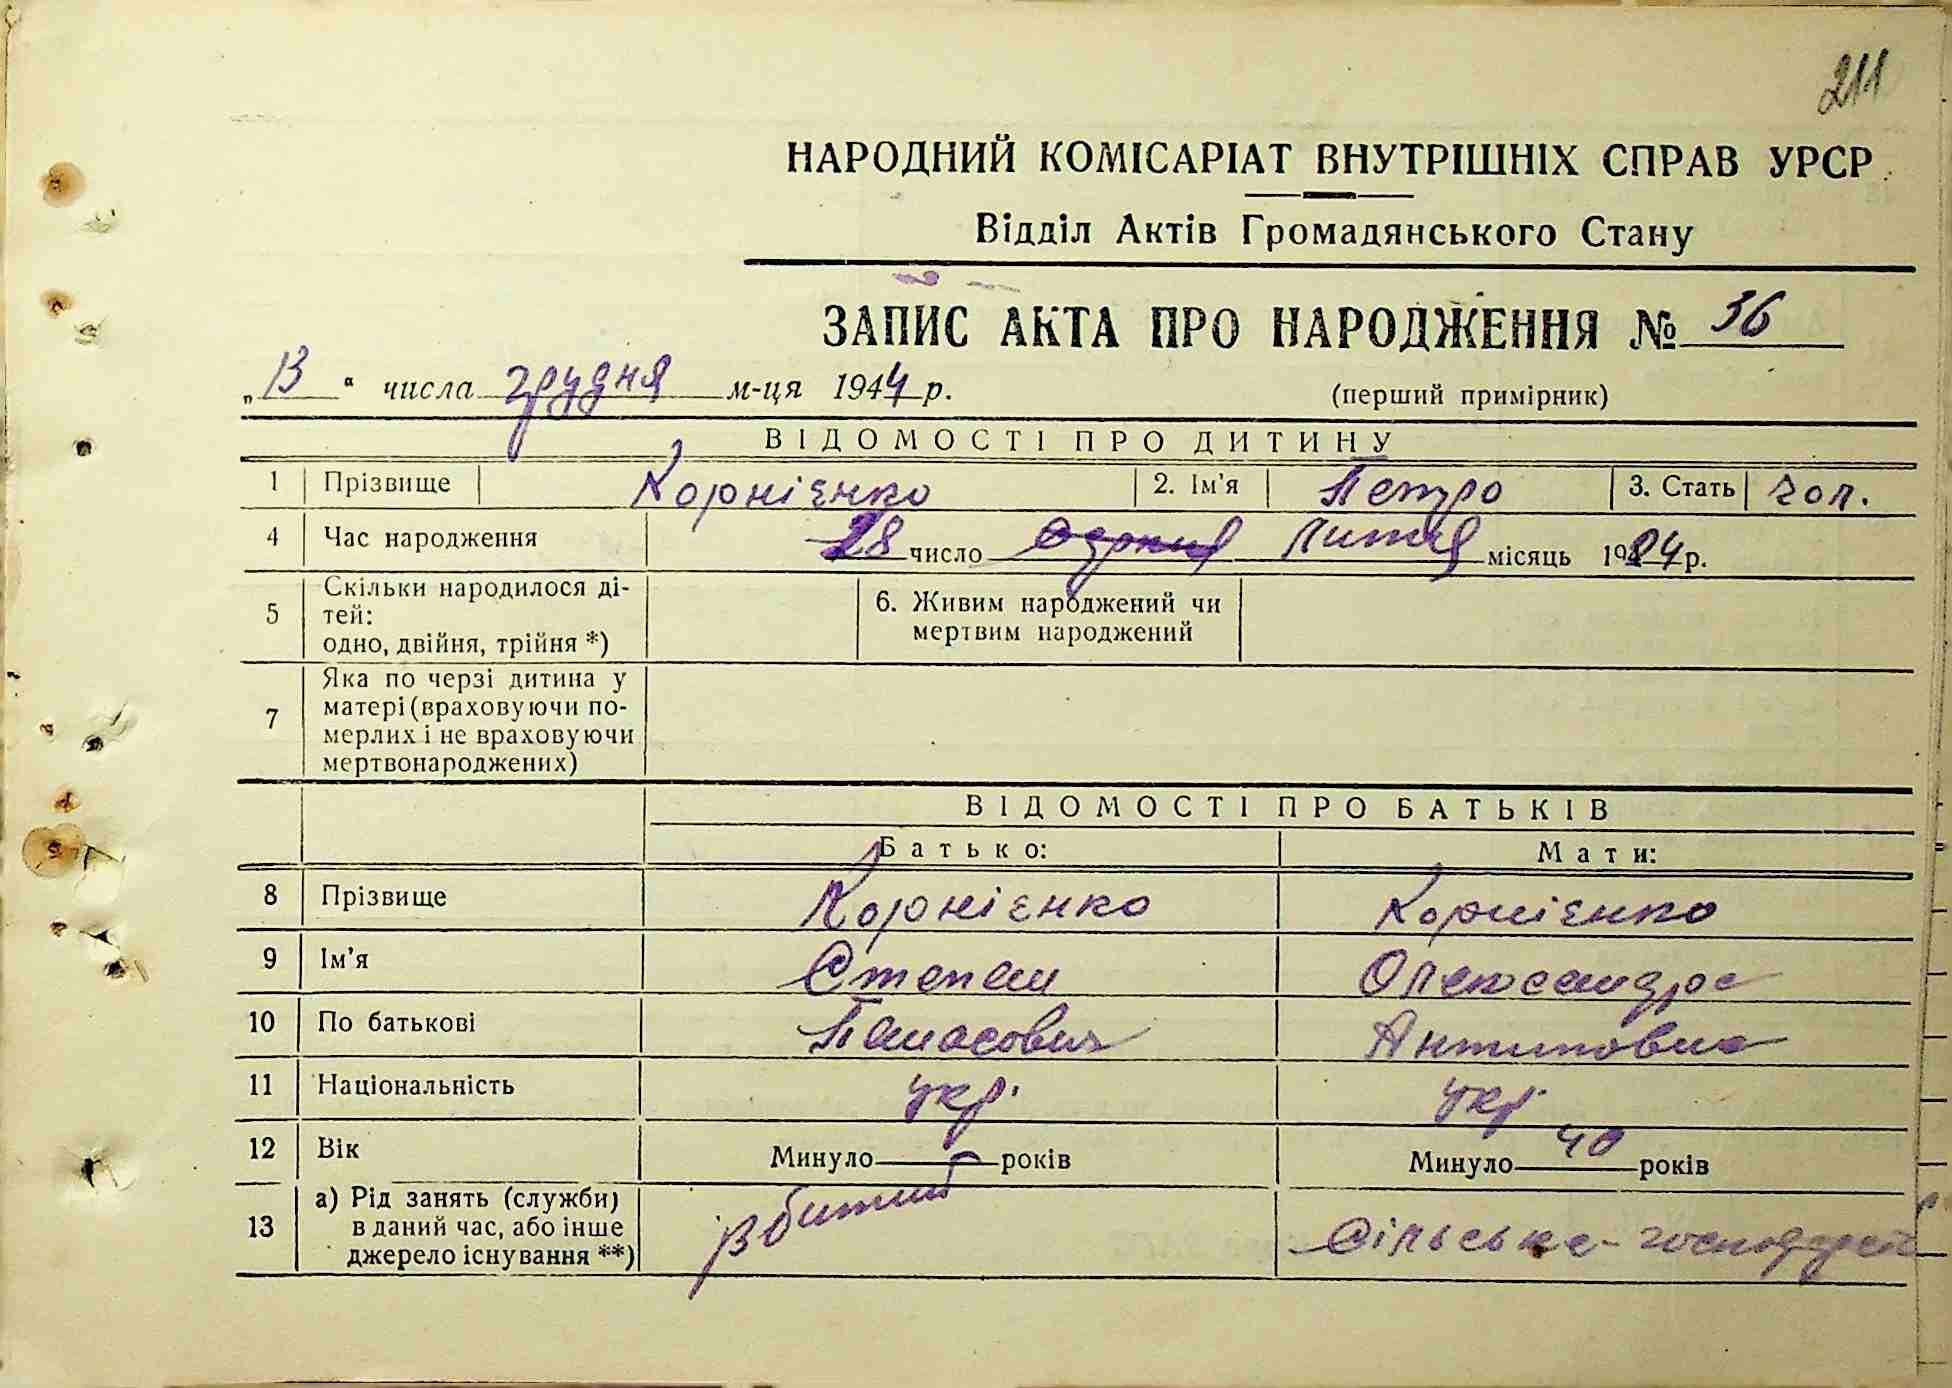 211
НАРОДНИЙ КОМІСАРІАТ ВНУТРІШНІХ СПРАВ УРСР
Відділ Актів Громадянського Стану
ЗАПИС АКТА ПРО НАРОДЖЕННЯ № 36
„13“ числа грудня м-ця 1944 р. (перший примірник)
ВІДОМОСТІ ПРО ДИТИНУ
1 Прізвище Корнієнко 2. Ім'я Петро 3. Стать чол.
4 Час народження 28 число лютня місяць 19 4 р.
5 Скільки народилося ді-
тей:
одно, двійня, трійня *)
6. Живим народжений чи
мертвим народжений
7 Яка по черзі дитина у
матері (враховуючи по-
мерлих і не враховуючи
мертвонароджених)
ВІДОМОСТІ ПРО БАТЬКІВ
Батько: Мати:
8 Прізвище Корнієнко Корнієнко
9 Ім'я Степан Олександра
10 По батькові Панасович Антиповна
11 Національність укр. укр.
12 Вік Минуло років Минуло 40 років
13 а) Рід занять (служби)
в даний час, або інше
джерело існування **)
Вбитий
Сільське-господар